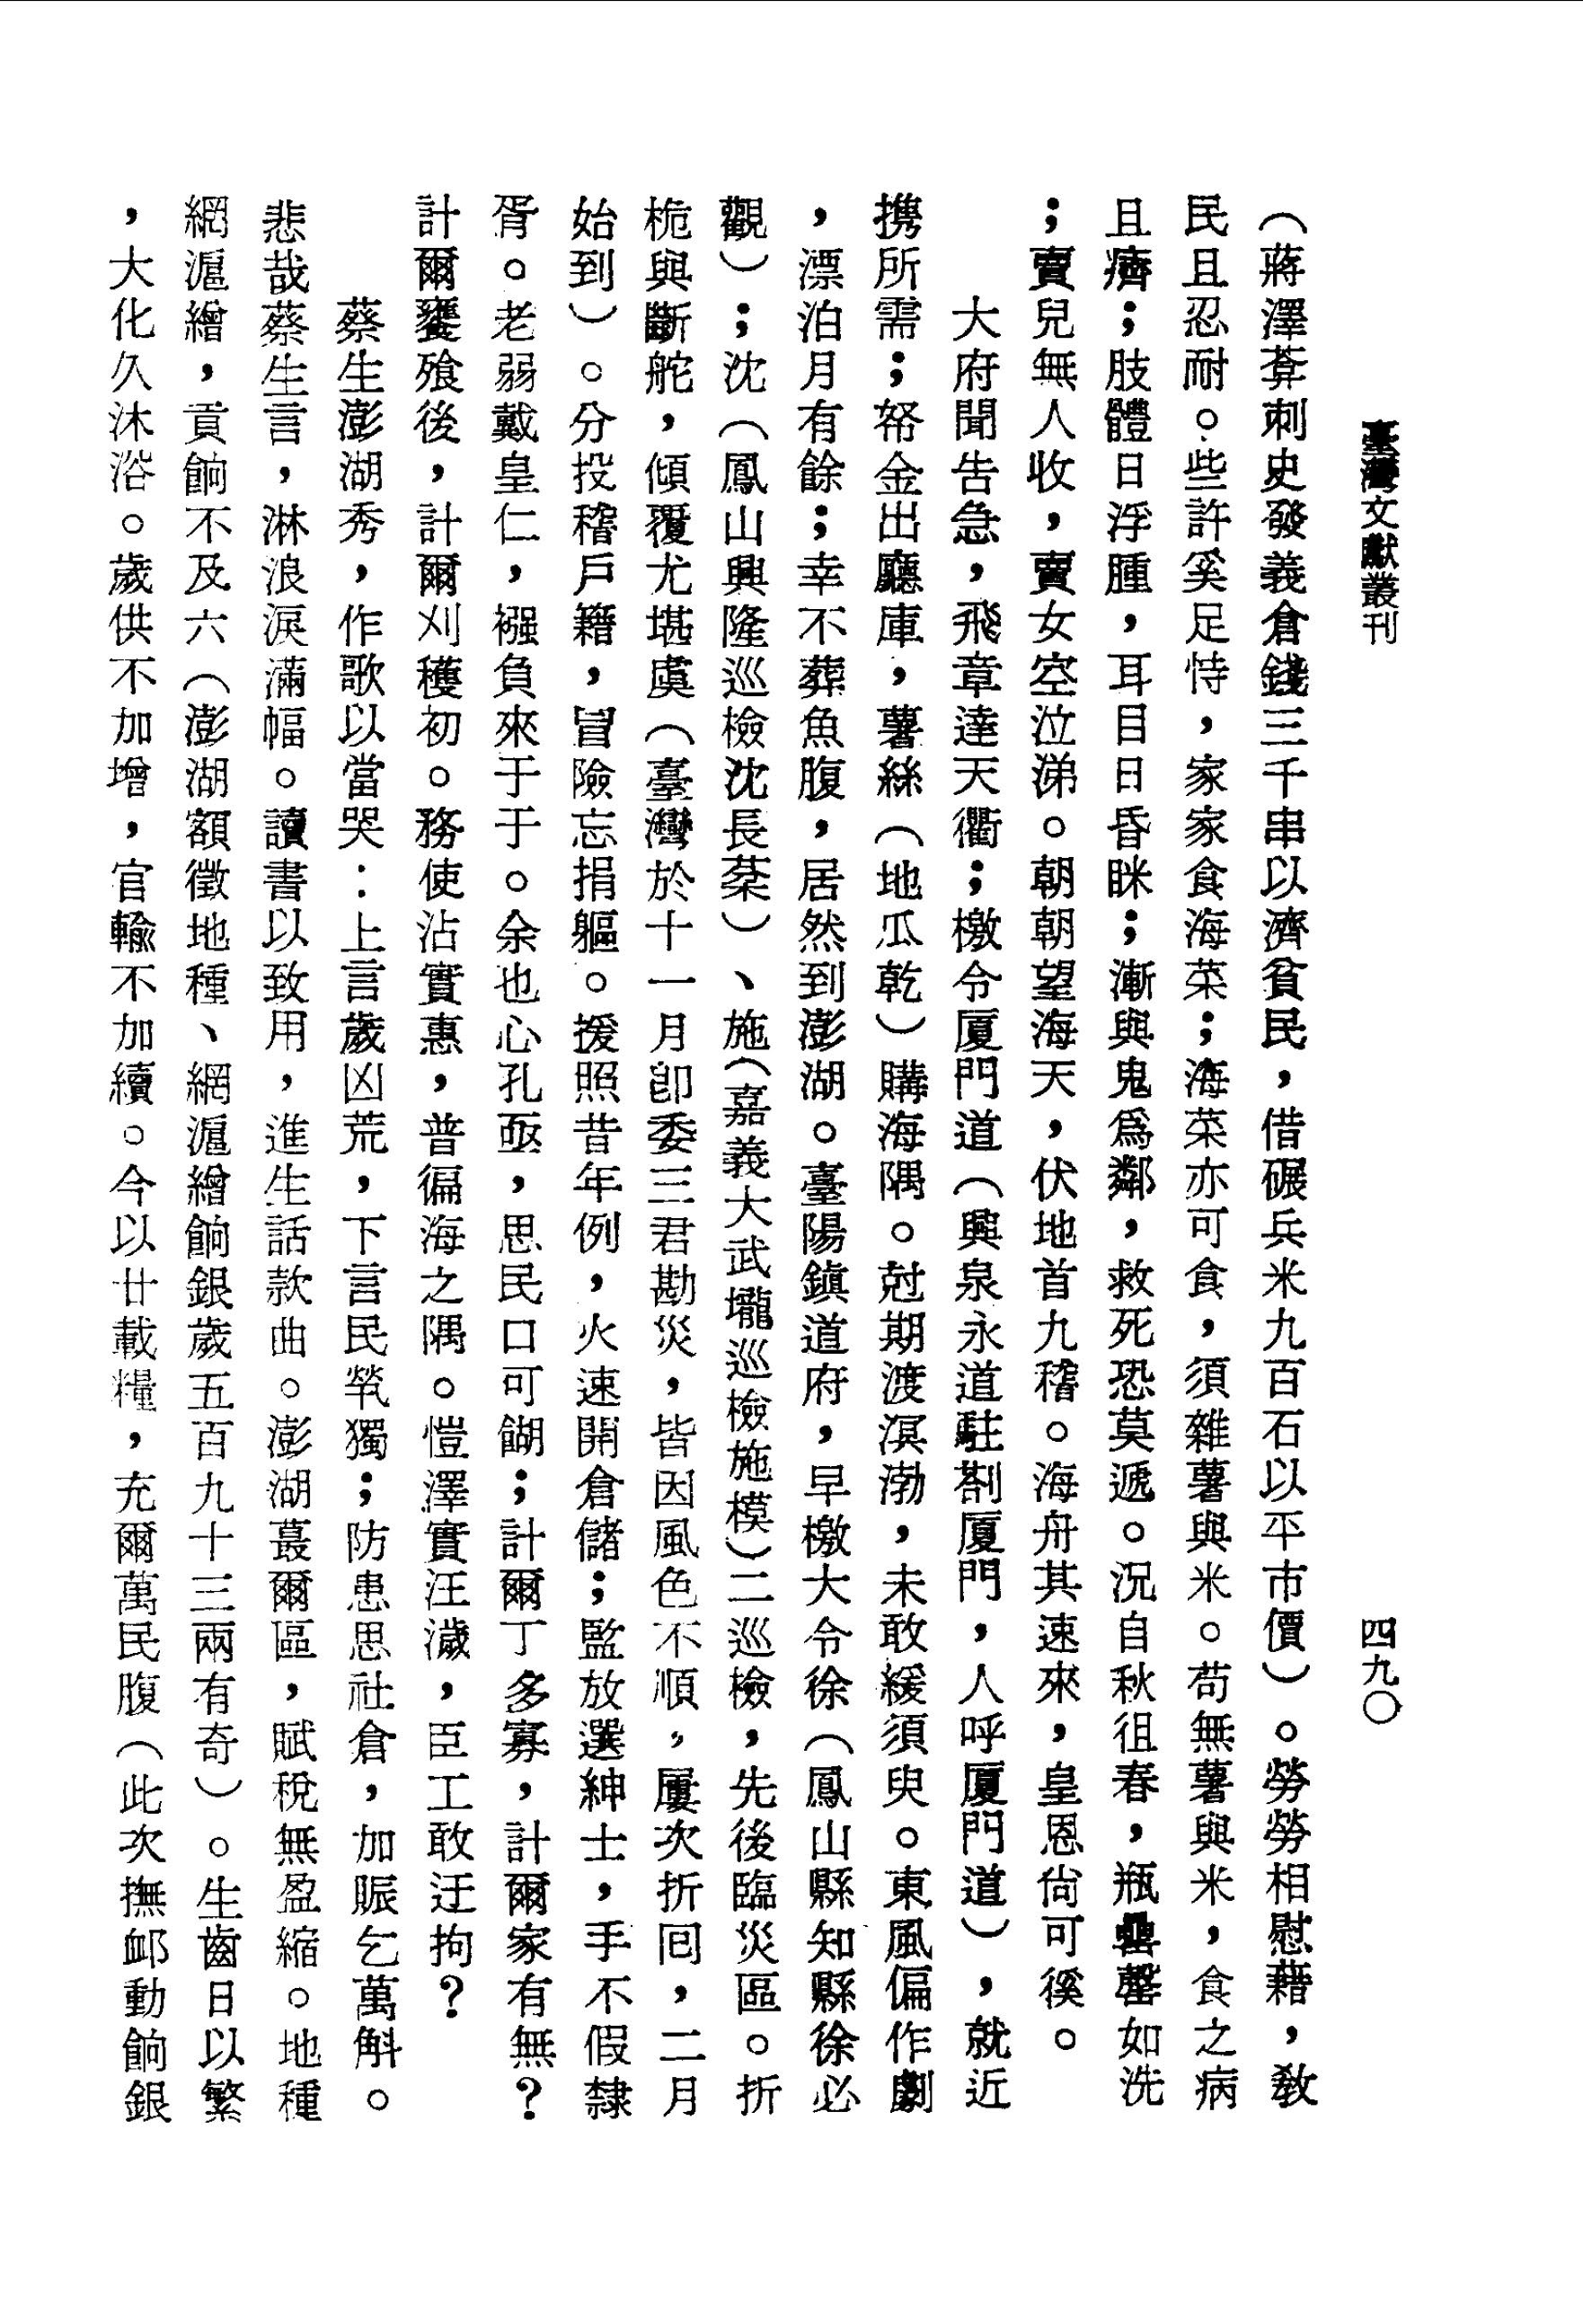 臺灣文獻叢刊
四九〇
（蔣澤莽刺史發義倉錢三千串以濟貧民，借碾兵米九百石以平市價）。勞勞相慰藉，敎
民且忍耐。些許奚足恃，家家食海菜；海菜亦可食，須雜薯與米。苟無薯與米，食之病
且癠；肢體日浮腫，耳目日昏眯；漸與鬼爲鄰，救死恐莫遞。況自秋徂春，瓶罍罄如洗
；賣兒無人收，賣女空泣涕。朝朝望海天，伏地首九稽。海舟其速來，皇恩尙可徯。
大府聞告急，飛章達天衢；檄令厦門道（興泉永道駐剳厦門，人呼厦門道），就近
携所需；帑金出廳庫，薯絲（地瓜乾）購海隅。尅期渡溟渤，未敢緩須臾。東風偏作劇
，漂泊月有餘；幸不葬魚腹，居然到澎湖。臺陽鎮道府，早檄大令徐（鳳山縣知縣徐必
觀）；沈（鳳山興隆巡檢沈長棻）、施（嘉義大武壠巡檢施模）二巡檢，先後臨災區。折
桅與斷舵，傾覆尤堪虞（臺灣於十一月卽委三君勘災，皆因風色不順，屢次折回，二月
始到）。分投稽戶籍，冒險忘捐軀。援照昔年例，火速開倉儲；監放選紳士，手不假隸
胥。老弱戴皇仁，襁負來于于。余也心孔亟，思民口可餬；計爾丁多寡，計爾家有無？
計爾饔飱後，計爾刈穫初。務使沾實惠，普徧海之隅。愷澤實汪濊，臣工敢迂拘？
蔡生澎湖秀，作歌以當哭：上言歲凶荒，下言民煢獨；防患思社倉，加賑乞萬斛。
悲哉蔡生言，淋浪淚滿幅。讀書以致用，進生話款曲。澎湖蕞爾區，賦稅無盈縮。地種
網滬繒，貢餉不及六（澎湖額徵地種、網滬繒餉銀歲五百九十三兩有奇）。生齒日以繁
，大化久沐浴。歲供不加增，官輸不加續。今以廿載糧，充爾萬民腹（此次撫卹動餉銀